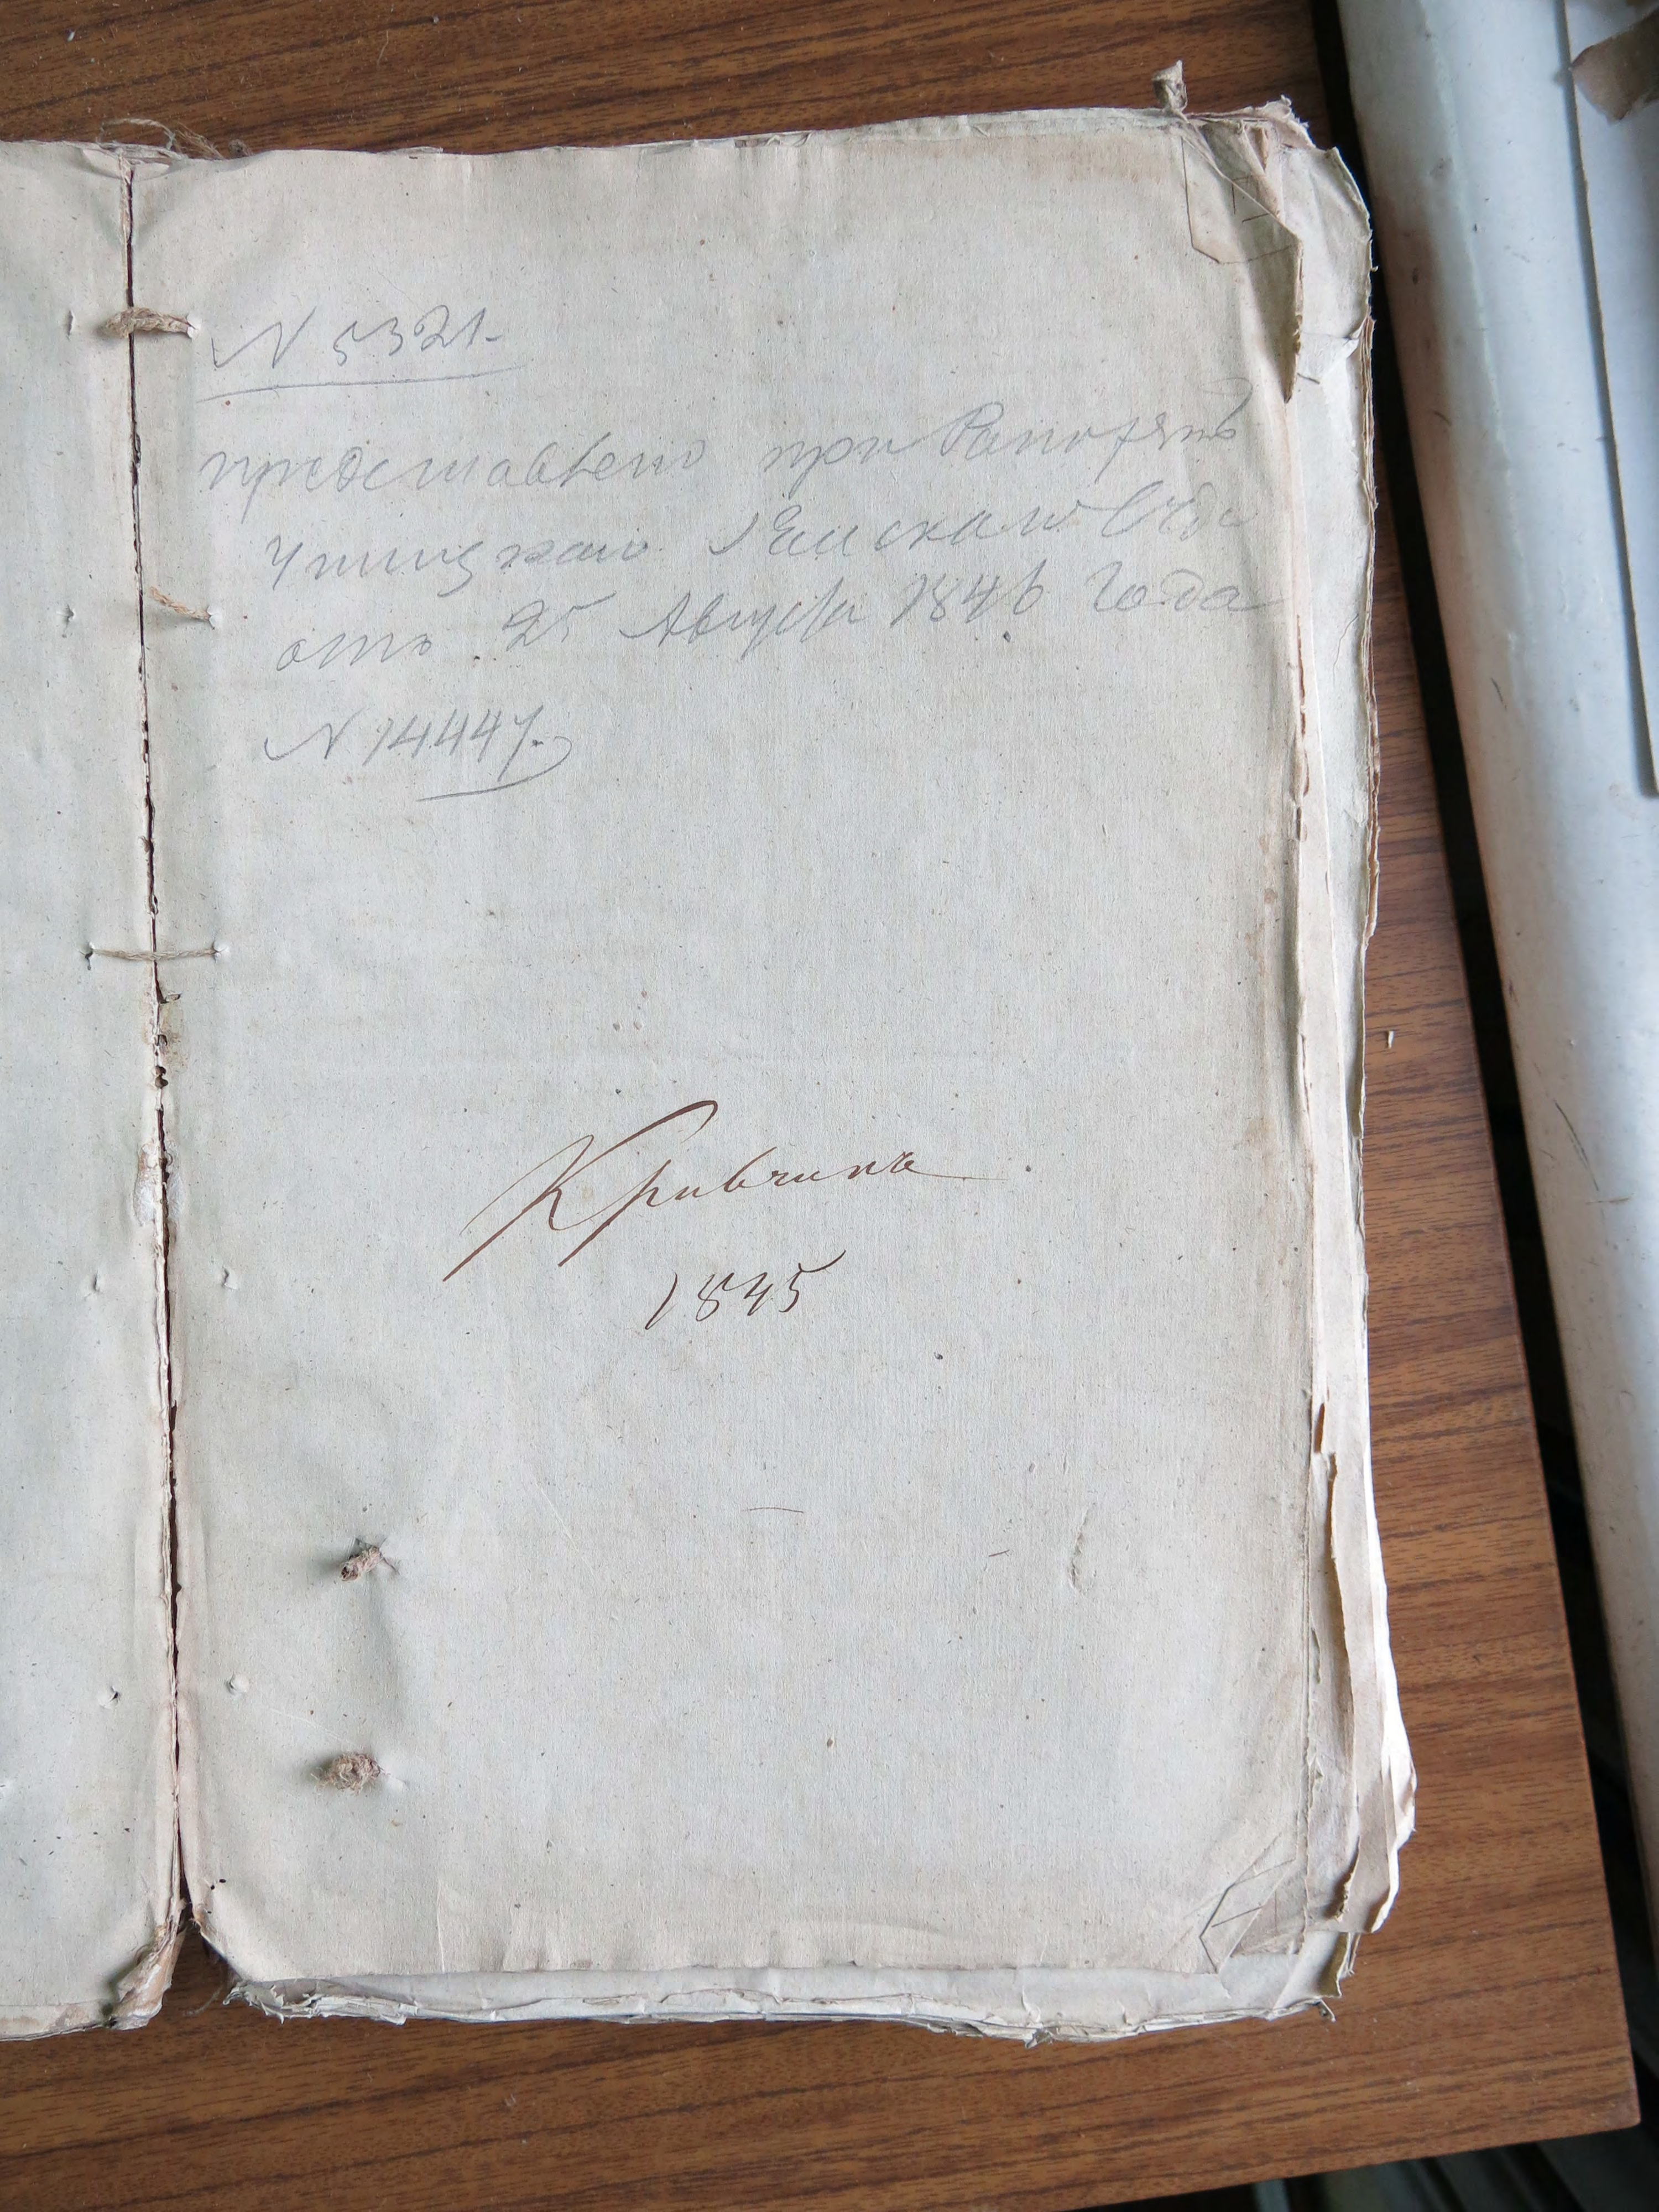 N 5321.
представлено при Рапортѣ
Ушицкаго Земскаго Суда
отъ 25 Августа 1846 Года
N 14447.
Кривчика
1845